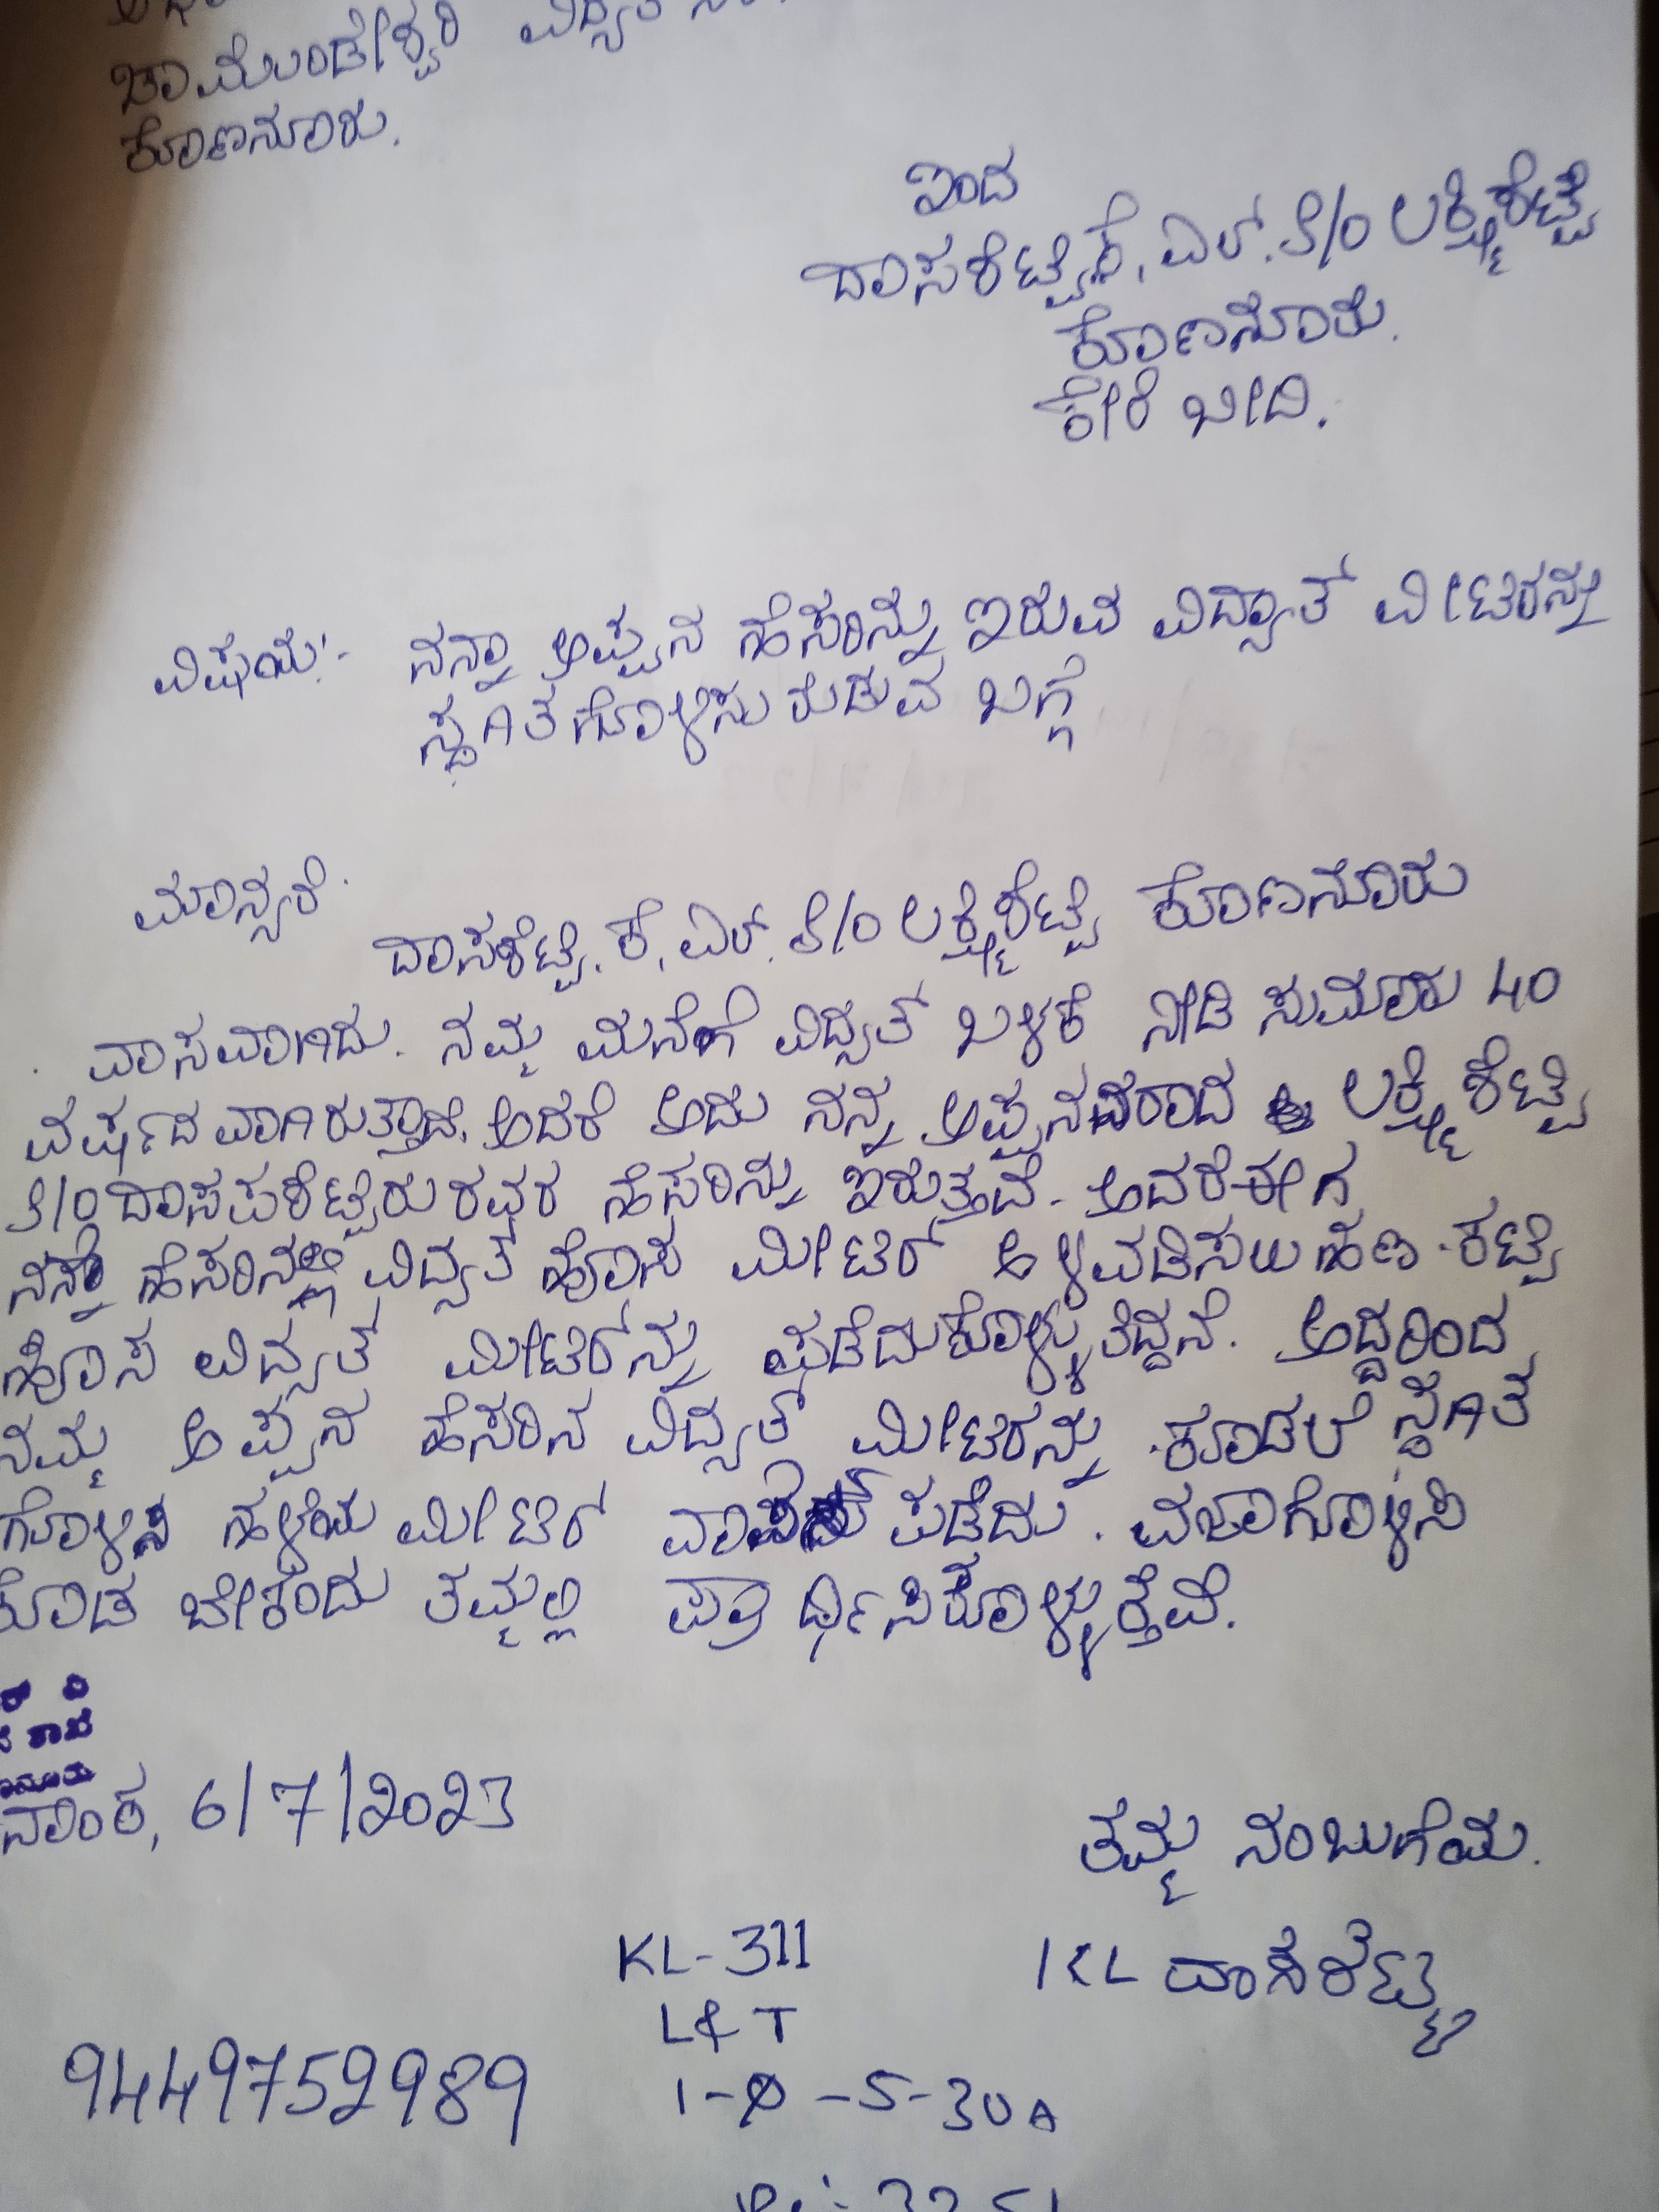 ಚಾಮುಂಡೇಶ್ವರಿ ವಿದ್ಯುತ್
ಕೊಣನೂರು.
ಇಂದ
ದಾಸಶೆಟ್ಟಿ.ಕೆ.ಎಲ್. S/O ಲಕ್ಷ್ಮಿಶೆಟ್ಟಿ
ಕೊಣನೂರು.
ಕೇರಿ ಬೀದಿ.
ವಿಷಯ:- ನನ್ನಾ ಅಪ್ಪನ ಹೆಸರಿನ್ನು ಇರುವ ವಿದ್ಯುತ್ ಮೀಟರನ್ನು
ಸ್ಥಗಿತಗೊಳಿಸು ಬಗ್ಗೆ
ಮಾನ್ಯರೆ.
ದಾಸಶೆಟ್ಟಿ.ಕೆ.ಎಲ್. S/O ಲಕ್ಷ್ಮಿಶೆಟ್ಟಿ ಕೊಣನೂರು
ವಾಸವಾಗಿದು. ನಮ್ಮ ಮನೆಗೆ ವಿದ್ಯುತ್ ಬಳಕೆ ನೀಡಿ ಸುಮಾರು 40
ವರ್ಷದವಾಗಿರುತ್ತಾದೆ. ಅದರೆ ಅದು ನನ್ನ ಅಪ್ಪನವರಾದ ಲಕ್ಷ್ಮಿಶೆಟ್ಟಿ
S/O ರವರ ಹೆಸರಿನ್ನು ಇರುತ್ತದೆ. ಅದರೆ ಈಗ
ನನ್ನ ಹೆಸರಿನಲ್ಲಿ ವಿದ್ಯುತ್ ಹೊಸ ಮೀಟರ್ ಅಳವಡಿಸಲು ಹಣ ಕಟ್ಟಿ
ಹೊಸ ವಿದ್ಯುತ್ ಮೀಟರ್‌ನ್ನು ಪಡೆದುಕೊಳ್ಳುತಿದ್ದನೆ. ಅದ್ದರಿಂದ
ನಮ್ಮ ಅಪ್ಪನ ಹೆಸರಿನ ವಿದ್ಯುತ್ ಮೀಟರನ್ನು ಕೂಡಲೆ ಸ್ಥಗಿತ
ಗೊಳಿಸಿ ಹಳೆಯ ಮೀಟರ್ ವಾಪಸ್ಸು ಪಡೆದು. ವಜಾಗೊಳಿಸಿ
ಕೊಡಬೇಕೆಂದು ತಮ್ಮಲ್ಲಿ ಪ್ರಾರ್ಥಿಸಿಕೊಳ್ಳುತ್ತೆವೆ.
ಶಾಖೆ
6/7/2023
ತಮ್ಮ ನಂಬುಗೆಯ.
KL-311
KL ದಾಸಶೆಟ್ಟಿ
L&T
9449752989
1-Ø-5-30A